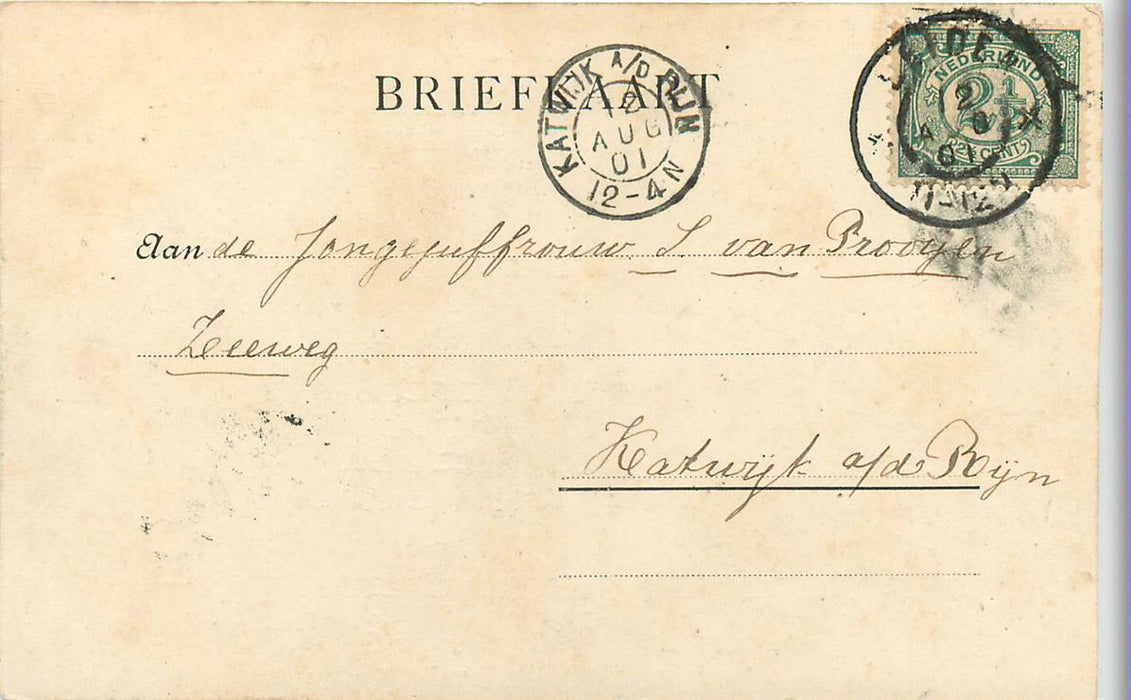 BRIEFKAART
KATWIJK A/D RIJN
12
AUG
01
12-4N
LEIDEN
NEDERLAND
2½
CENT
11-12
Aan de Jongejuffrouw S. van Prooyen
Zeeweg
Katwijk a/d Rijn